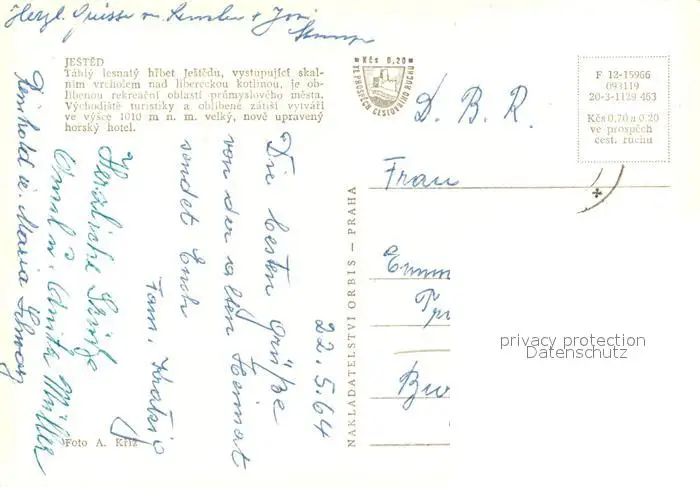 Herzl. Grüsse v.
JEŠTĚD
Táhlý lesnatý hřbet Ještědu, vystupující skal-
ním vrcholem nad libereckou kotlinou, je ob-
líbenou rekreační oblastí průmyslového města.
Východiště turistiky a oblíbené zátiší vytváří
ve výšce 1010 m n. m. velký, nově upravený
horský hotel.
Kčs 0,20
VE PROSPĚCH CESTOVNÍHO RUCHU
F 12-15966
093119
20-3-1129 463
Kčs 0,70 a 0,20
ve prospěch
cest. ruchu
D. B. R.
Frau
Emm
Bu
22.5.64
Die besten Grüße
von der alten Heimat
sendet Euch
Fam.
Herzliche Grüße
u. Anita Müller
Reinhold u. Maria
NAKLADATELSTVÍ ORBIS — PRAHA
Foto A. Kříž
privacy protection
Datenschutz